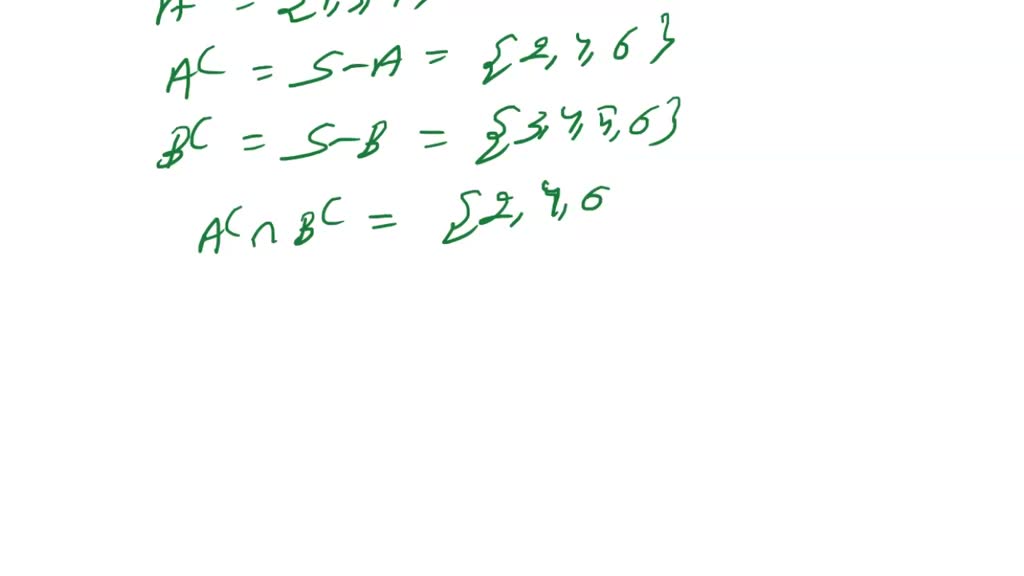 A^C = S-A = {2, 4, 6}
B^C = S-B = {3, 4, 5, 6}
A^C ∩ B^C = {2, 4, 6